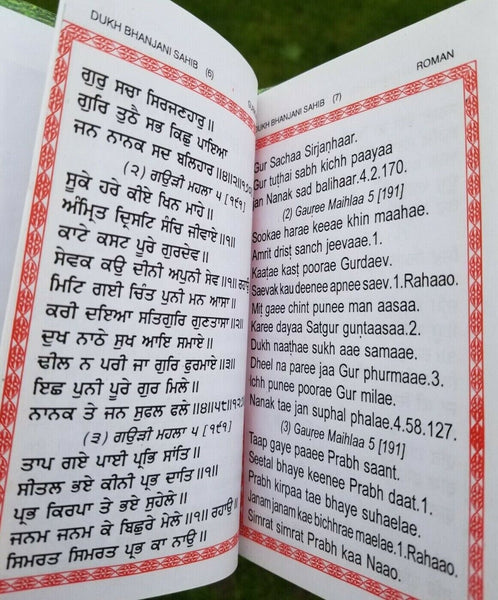 DUKH BHANJANI SAHIB (6)
ਗੁਰੁ ਸਚਾ ਸਿਰਜਣਹਾਰੁ॥
ਗੁਰਿ ਤੁਠੈ ਸਭ ਕਿਛੁ ਪਾਇਆ
ਜਨ ਨਾਨਕ ਸਦ ਬਲਿਹਾਰ॥੪॥੨॥੧੭੦
(੨) ਗਉੜੀ ਮਹਲਾ ੫ [੧੯੧]
ਸੂਕੇ ਹਰੇ ਕੀਏ ਖਿਨ ਮਾਹੇ॥
ਅੰਮ੍ਰਿਤ ਦ੍ਰਿਸਟਿ ਸੰਚਿ ਜੀਵਾਏ॥੧॥
ਕਾਟੇ ਕਸਟ ਪੂਰੇ ਗੁਰਦੇਵ॥
ਸੇਵਕ ਕਉ ਦੀਨੀ ਅਪੁਨੀ ਸੇਵ॥੧॥ ਰਹਾਉ
ਮਿਟਿ ਗਈ ਚਿੰਤ ਪੁਨੀ ਮਨ ਆਸਾ॥
ਕਰੀ ਦਇਆ ਸਤਿਗੁਰਿ ਗੁਣਤਾਸਾ॥
ਦੁਖ ਨਾਠੇ ਸੁਖ ਆਇ ਸਮਾਏ॥
ਢੀਲ ਨ ਪਰੀ ਜਾ ਗੁਰਿ ਫੁਰਮਾਏ॥੩॥
ਇਛ ਪੁਨੀ ਪੂਰੇ ਗੁਰ ਮਿਲੇ॥
ਨਾਨਕ ਤੇ ਜਨ ਸੁਫਲ ਫਲੇ॥੪॥੫੮॥੧੨੭
(੩) ਗਉੜੀ ਮਹਲਾ ੫ [੧੯੧]
ਤਾਪ ਗਏ ਪਾਈ ਪ੍ਰਭਿ ਸਾਂਤਿ॥
ਸੀਤਲ ਭਏ ਕੀਨੀ ਪ੍ਰਭ ਦਾਤਿ॥੧॥
ਪ੍ਰਭ ਕਿਰਪਾ ਤੇ ਭਏ ਸੁਹੇਲੇ॥
ਜਨਮ ਜਨਮ ਕੇ ਬਿਛੁਰੇ ਮੇਲੇ॥੧॥ ਰਹਾਉ॥
ਸਿਮਰਤ ਸਿਮਰਤ ਪ੍ਰਭ ਕਾ ਨਾਉ॥
DUKH BHANJANI SAHIB (7) ROMAN
Gur Sachaa Sirjanhaar.
Gur tuthai sabh kichh paayaa
jan Nanak sad balihaar.4.2.170.
(2) Gauree Maihlaa 5 [191]
Sookae harae keeae khin maahae.
Amrit drist sanch jeevaae.1.
Kaatae kast poorae Gurdaev.
Saevak kau deenee apnee saev.1.Rahaao.
Mit gaee chint punee man aasaa.
Karee dayaa Satgur guntaasaa.2.
Dukh naathae sukh aae samaae.
Dheel na paree jaa Gur phurmaae.3.
Ichh punee poorae Gur milae.
Nanak tae jan suphal phalae.4.58.127.
(3) Gauree Maihlaa 5 [191]
Taap gaye paaee Prabh saant.
Seetal bhaye keenee Prabh daat.1.
Prabh kirpaa tae bhaye suhaelae.
Janam janam kae bichhrae maelae.1.Rahaao.
Simrat simrat Prabh kaa Naao.